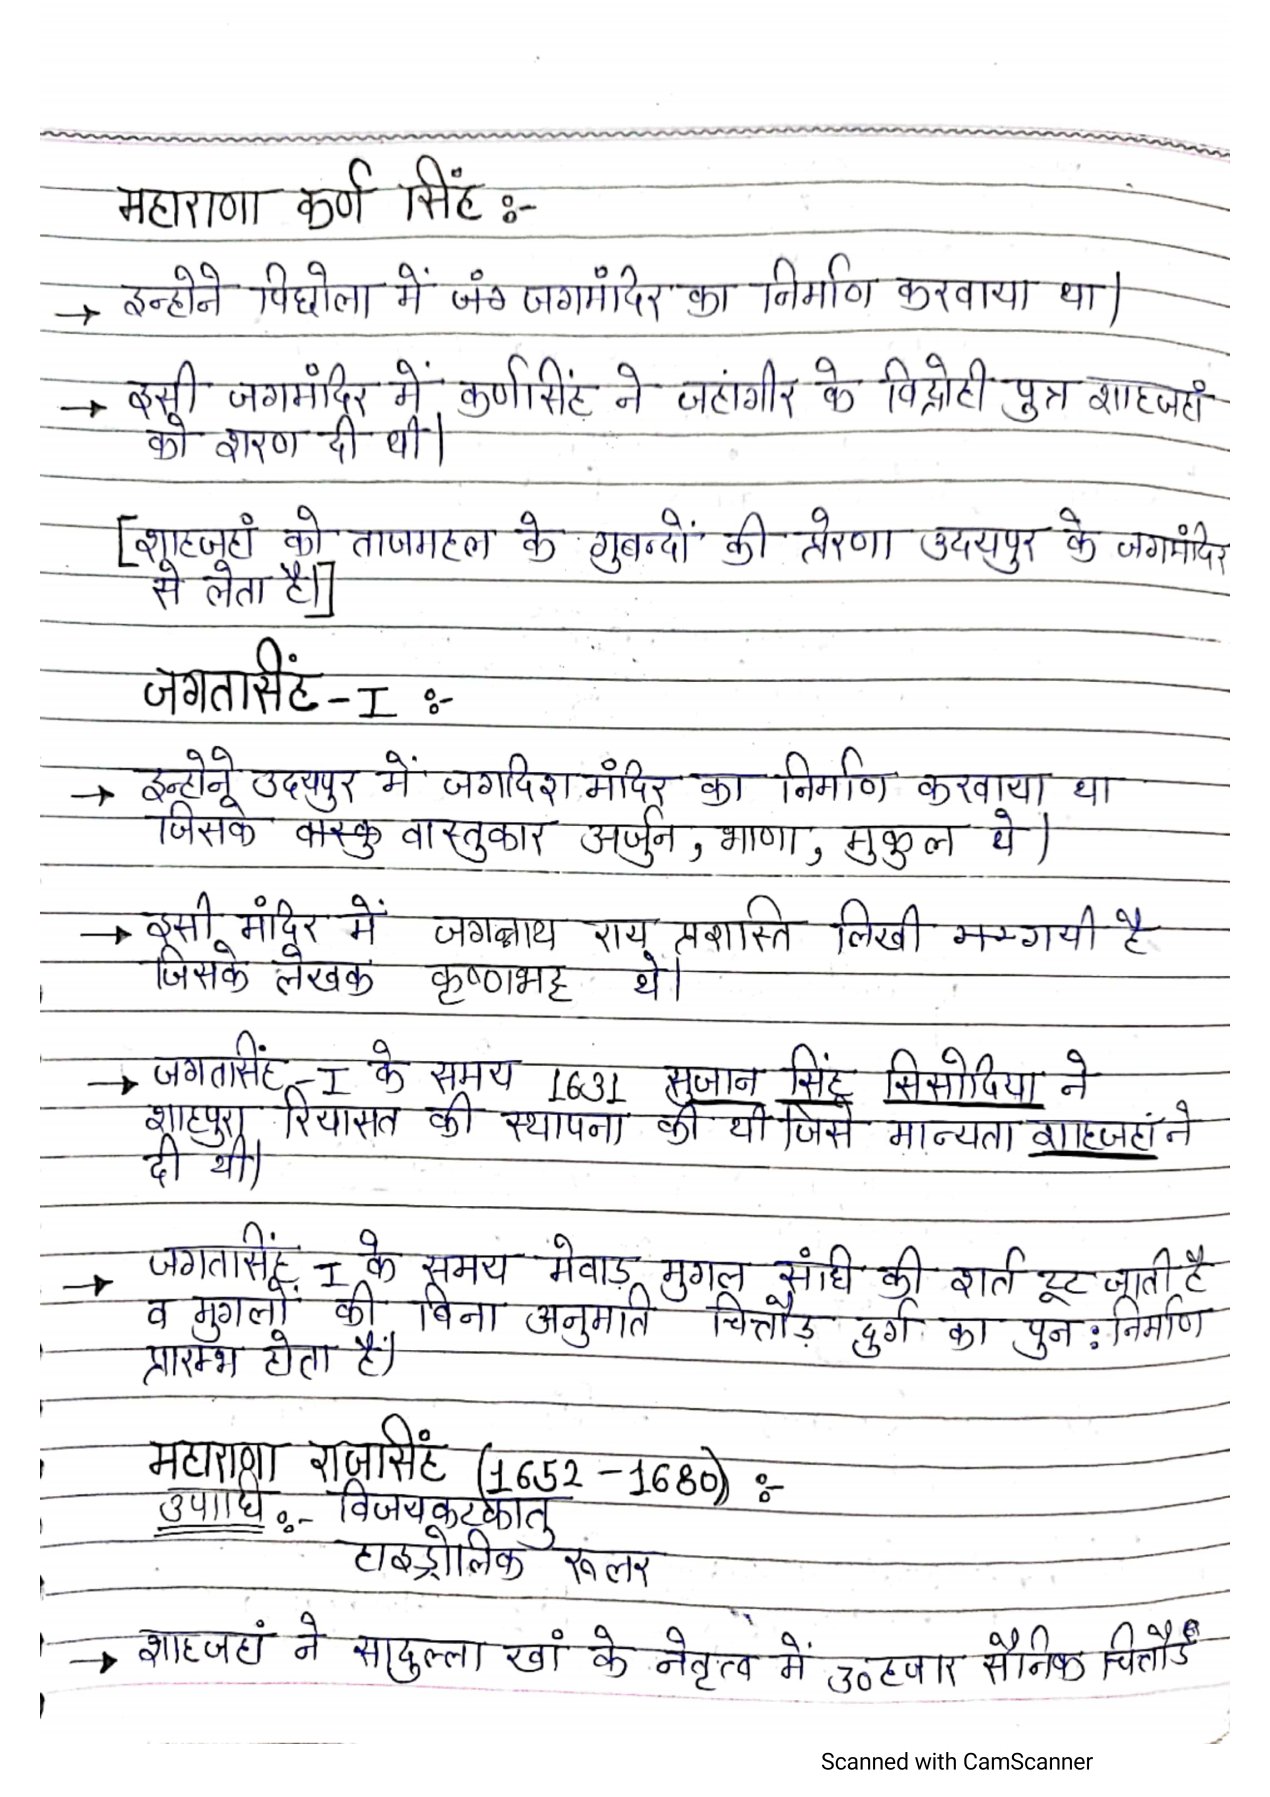 महाराणा कर्ण सिंह :-
→ इन्होने पिछोला में जगमंदिर का निर्माण करवाया था।
→ इसी जगमंदिर में कर्णसिंह ने जहांगीर के विद्रोही पुत्र शाहजहां
को शरण दी थी।
[शाहजहां को ताजमहल के गुबन्दों की प्रेरणा उदयपुर के जगमंदिर
से लेता है।]
जगतसिंह - I :-
→ इन्होने उदयपुर में जगदिश मंदिर का निर्माण करवाया था
जिसके वास्तुकार अर्जुन, भाणा, मुकुल थे।
→ इसी मंदिर में जगन्नाथ राय प्रशस्ति लिखी गयी है
जिसके लेखक कृष्णभट्ट थे।
→ जगतसिंह - I के समय 1631 सुजान सिंह सिसोदिया ने
शाहपुरा रियासत की स्थापना की थी जिसे मान्यता शाहजहां ने
दी थी।
→ जगतसिंह I के समय मेवाड़ मुगल संधि की शर्त टूट जाती है
व मुगलों की बिना अनुमति चित्तौड़ दुर्ग का पुन: निर्माण
प्रारम्भ होता हैं।
महाराणा राजसिंह (1652 - 1680) :-
उपाधि :- विजयकटकातु
हाइड्रोलिक रूलर
→ शाहजहां ने सादुल्ला खां के नेतृत्व में 30 हजार सैनिक चित्तौड़
Scanned with CamScanner